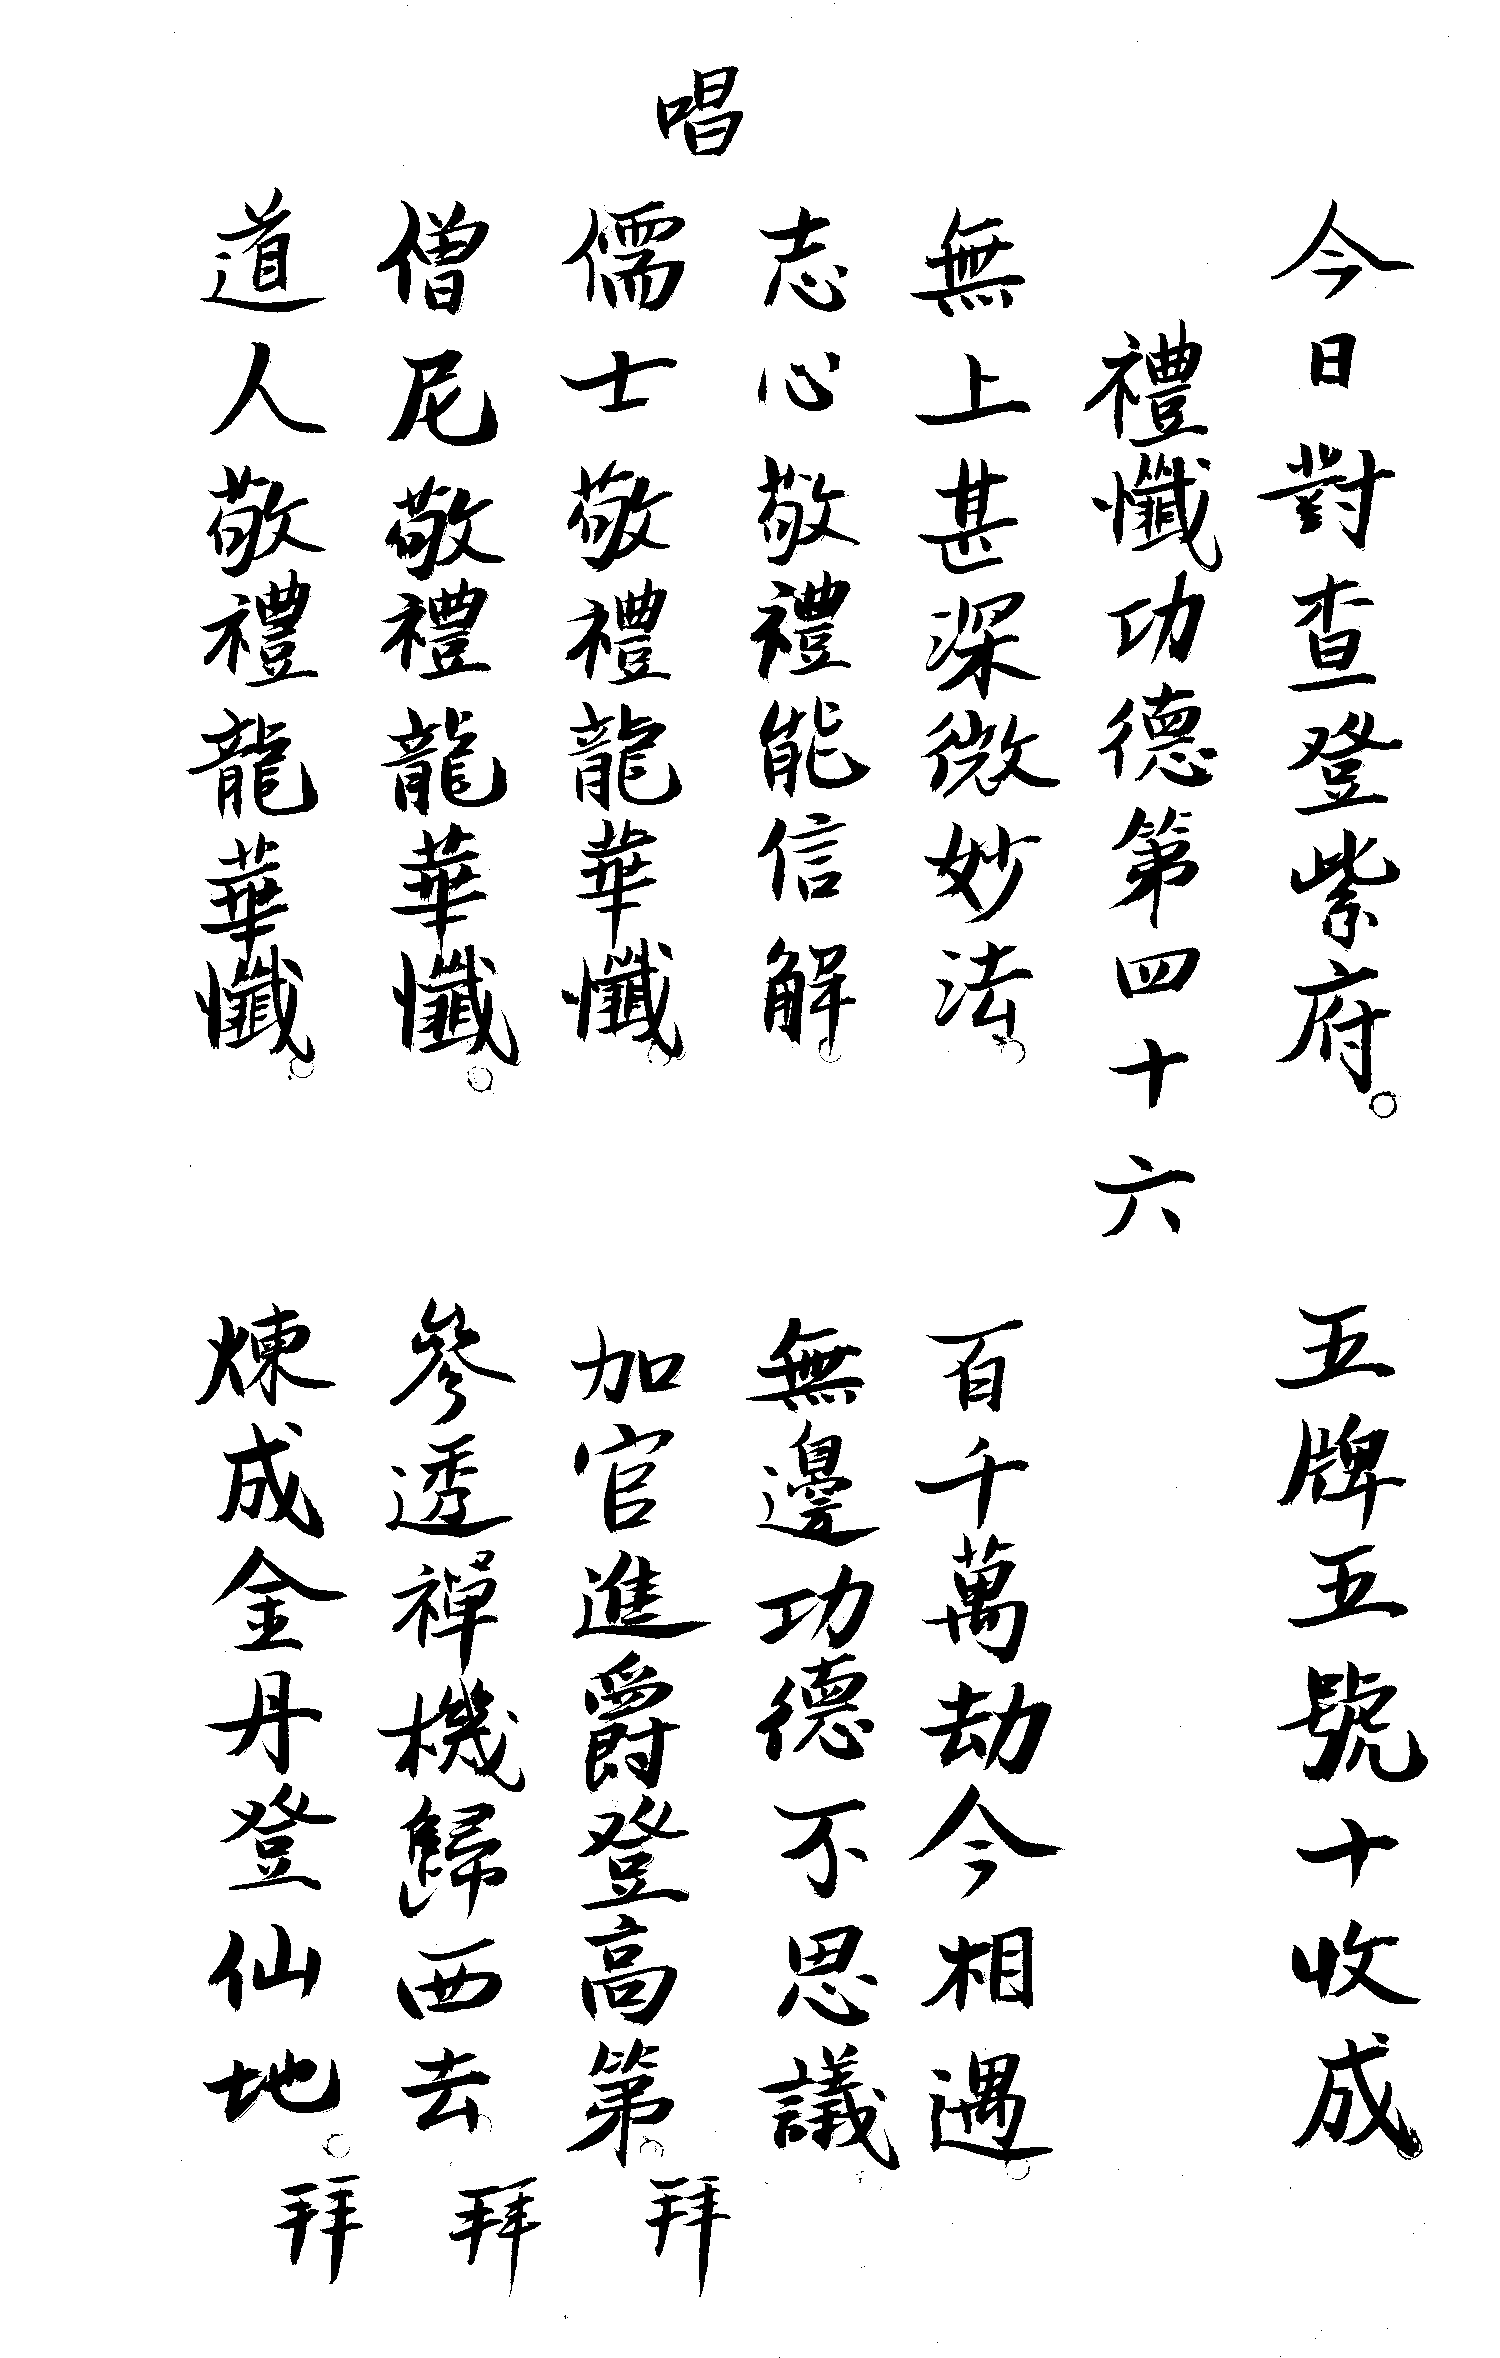 今日對查登紫府。五牌五號十收成。
禮懺功德第四十六
無上甚深微妙法。百千萬劫今相遇。
志心敬禮能信解。無邊功德不思議
唱
儒士敬禮龍華懺。加官進爵登高第。拜
僧尼敬禮龍華懺。參透禪機歸西去。拜
道人敬禮龍華懺。煉成金丹登仙地。拜